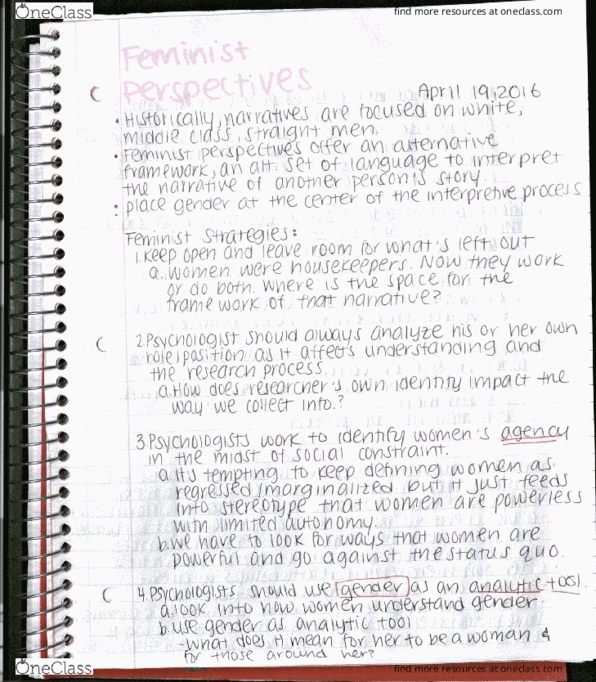 OneClass
find more resources at oneclass.com
Feminist
Perspectives
April 19, 2016
• Historically, narratives are focused on white,
middle class, straight men.
• Feminist perspectives offer an alternative
framework, an alt. set of language to interpret
the narrative of another person's story.
• place gender at the center of the interpretive process
Feminist Strategies:
1. Keep open and leave room for what's left out
a. women were housekeepers. Now they work
or do both. Where is the space for the
frame work of that narrative?
2. Psychologist should always analyze his or her own
role/position as it affects understanding and
the research process.
a. How does researcher's own identity impact the
way we collect info.?
3. Psychologists work to identify women's agency
in the midst of social constraint.
a. it's tempting to keep defining women as
regressed/marginalized but it just feeds
into stereotype that women are powerless
with limited autonomy.
b. we have to look for ways that women are
powerful and go against the status quo.
4. Psychologists should use gender as an analytic tool.
a. look into how women understand gender
b. use gender as analytic tool
- what does it mean for her to be a woman &
for those around her?
OneClass
find more resources at oneclass.com